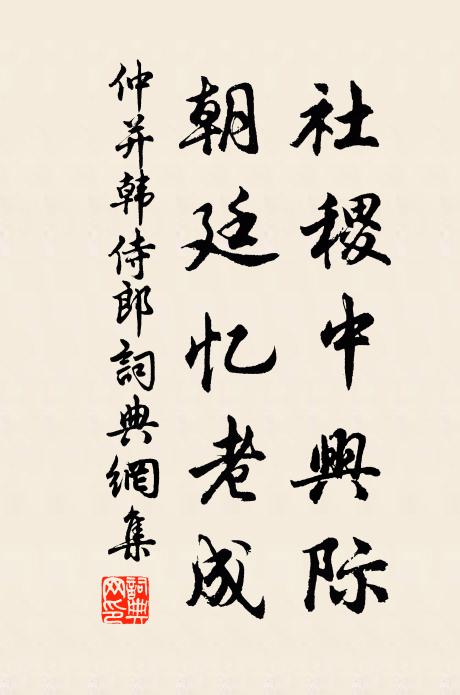 社稷中興际
朝廷忆老成
仲并韩侍郎詞典網集
詞典網印